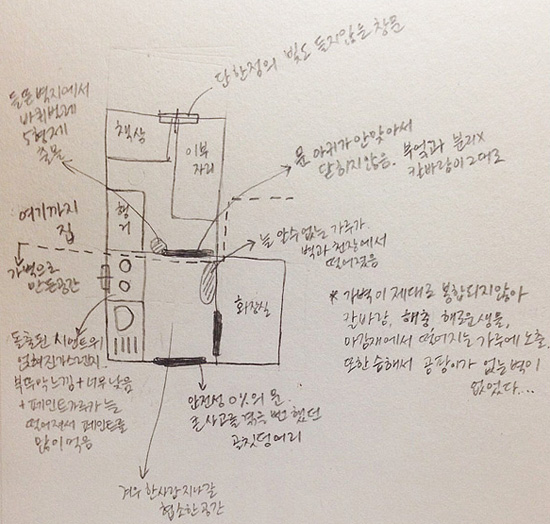 단 한점의 빛도 들지않을 창문
들뜬 벽지에서
바퀴벌레
5형제
출몰
책상
이부
자리
문 아귀가 안맞아서
닫히지않음. 부엌과 분리x
칼바람이 그대로
행
거
여기까지
집
가벽으로
만든공간
늘 알수없는 가루가
벽과 천장에서
떨어졌음
화장실
* 가벽이 제대로 봉합되지않아
칼바람, 해충 해로운생물,
아침에서 떨어지는 가루에 노출.
또한 습해서 곰팡이가 없는벽이
없었다...
돌출된 시멘트위
얹혀진가스렌지.
부뚜막느낌+너무낮음
+페인트가루가 늘
떨어져서 페인트를
많이 먹음
안전성 0%의 문.
큰사고를 겪을 뻔 했던
골칫덩어리
겨우 한사람 지나갈
협소한 공간